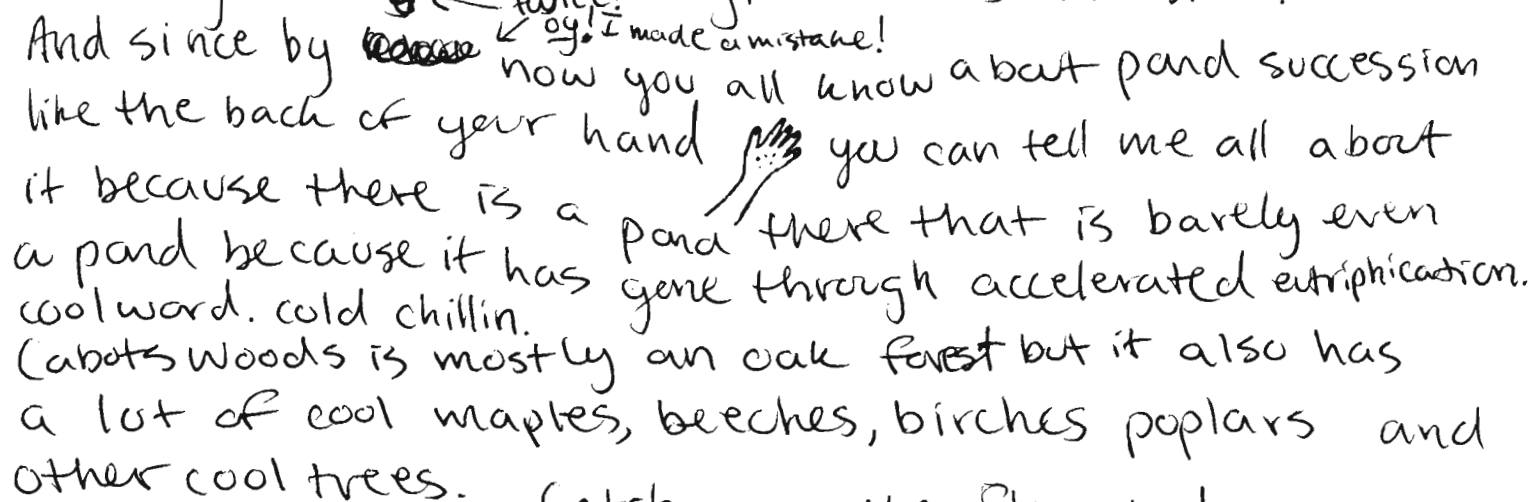 oy! I made a mistake!
And since by now you all know about pond succession
like the back of your hand you can tell me all about
it because there is a pond there that is barely even
a pond because it has gone through accelerated eutriphication.
cool word. cold chillin.
Cabots Woods is mostly an oak forest but it also has
a lot of cool maples, beeches, birches poplars and
other cool trees.